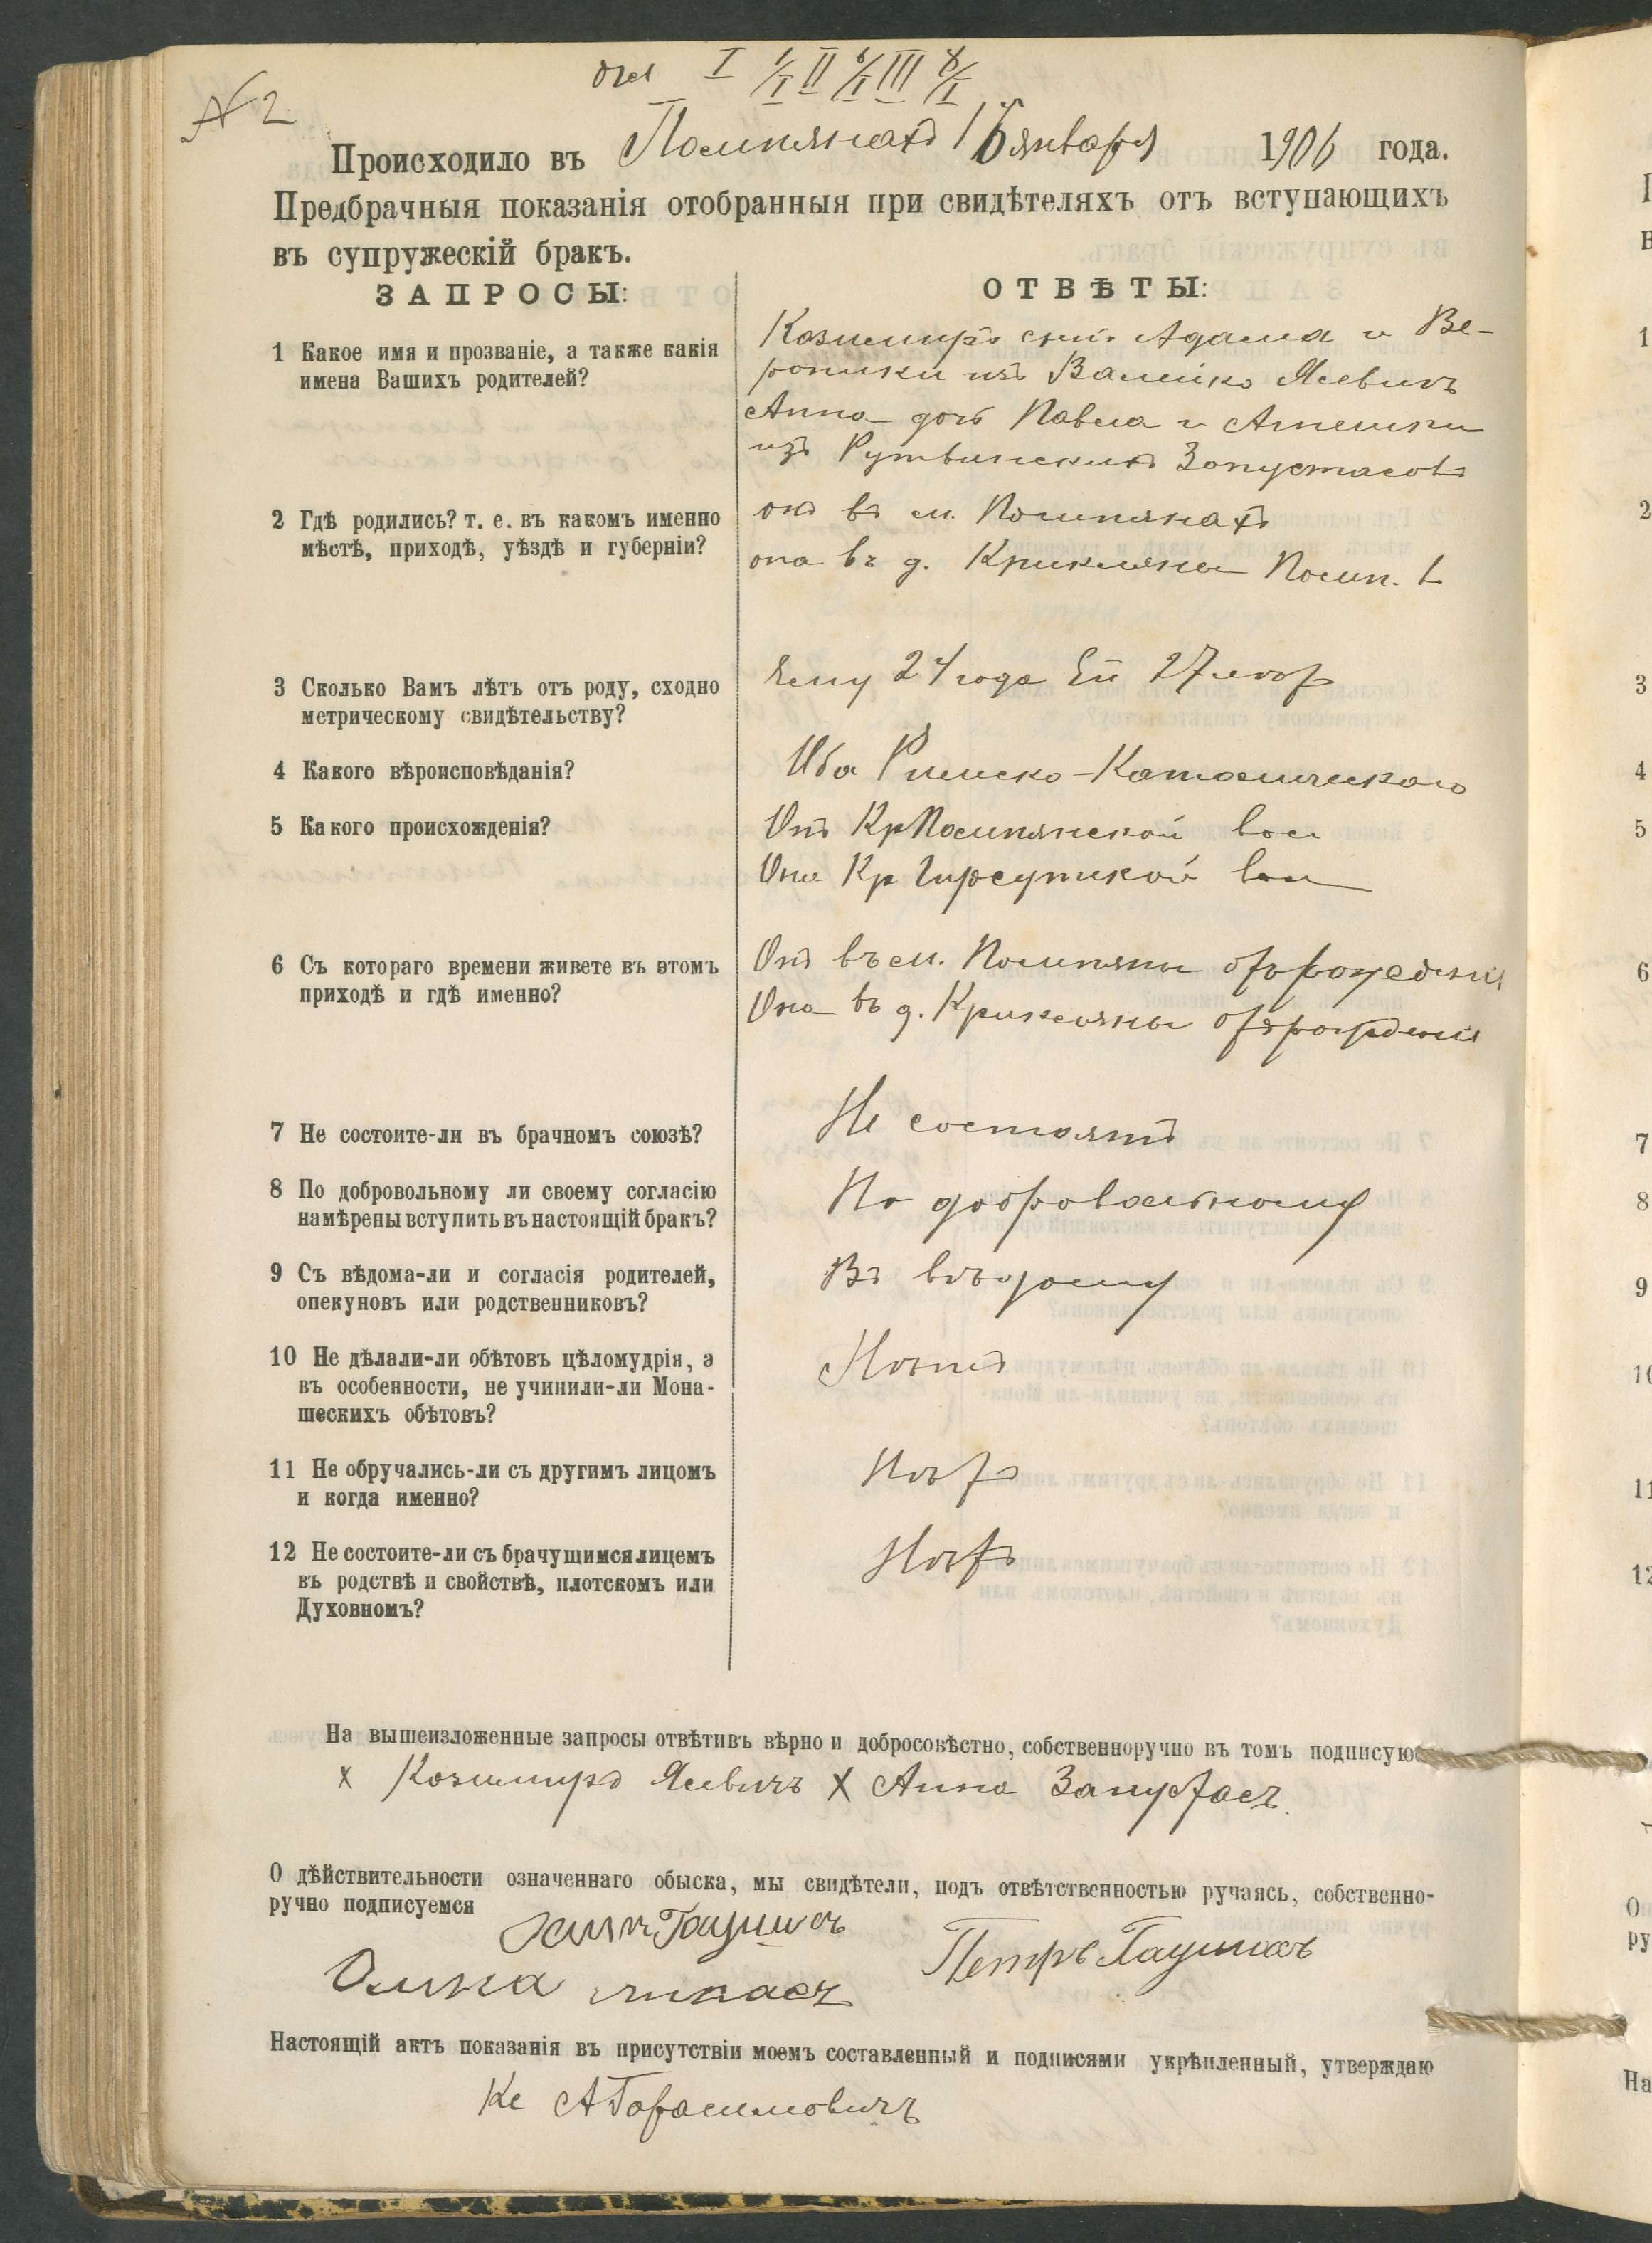 № 2
огл I 1/I II 6/I III 8/I
Происходило въ Помпянахъ 15 января 1906 года.
Предбрачныя показанія отобранныя при свидѣтеляхъ отъ вступающихъ
въ супружескій бракъ.
ЗАПРОСЫ:
ОТВѢТЫ:
1 Какое имя и прозваніе, а также какія
имена Вашихъ родителей?
Козимиръ сынъ Адама и Ве-
роники изъ Валейко Ясевичъ
Анна дочь Павла и Агнешки
изъ Рутвинскихъ Запустасовъ
2 Гдѣ родились? т. е. въ какомъ именно
мѣстѣ, приходѣ, уѣздѣ и губерніи?
онъ въ м. Помпянахъ
она въ д. Крикляны Помп.
3 Сколько Вамъ лѣтъ отъ роду, сходно
метрическому свидѣтельству?
Ему 24 года Ей 27 лѣтъ
4 Какого вѣроисповѣданія?
Оба Римско-Католическаго
5 Какого происхожденія?
Онъ Кр Помпянской вол
Она Кр Гирсутской вол
6 Съ котораго времени живете въ этомъ
приходѣ и гдѣ именно?
Онъ въ м. Помпяны отъ рожденія
Она въ д. Крикляны отъ рожденія
7 Не состоите-ли въ брачномъ союзѣ?
Не состоятъ
8 По добровольному ли своему согласію
намѣрены вступить въ настоящій бракъ?
По добровольному
9 Съ вѣдома-ли и согласія родителей,
опекуновъ или родственниковъ?
Въ вѣдому
10 Не дѣлали-ли обѣтовъ цѣломудрія, а
въ особенности, не учинили-ли Мона-
шескихъ обѣтовъ?
Нѣтъ
11 Не обручались-ли съ другимъ лицомъ
и когда именно?
Нѣтъ
12 Не состоите-ли съ брачущимся лицемъ
въ родствѣ и свойствѣ, плотскомъ или
Духовномъ?
Нѣтъ
На вышеизложенные запросы отвѣтивъ вѣрно и добросовѣстно, собственноручно въ томъ подписую
х Козимиръ Ясевичъ х Анна Запустасъ
О дѣйствительности означеннаго обыска, мы свидѣтели, подъ отвѣтственностью ручаясь, собственно-
ручно подписуемся
Петръ Гаушасъ
Настоящій актъ показанія въ присутствіи моемъ составленный и подписями укрѣпленный, утверждаю
Кс А Гарасимовичъ